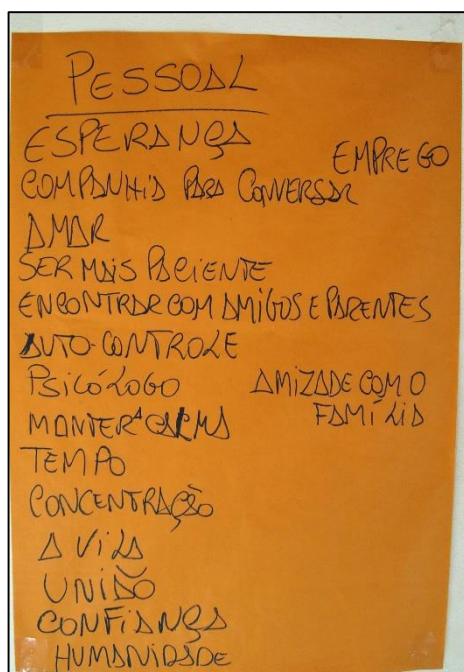 PESSOAL
ESPERANÇA
EMPREGO
COMPANHIA PARA CONVERSAR
AMAR
SER MAIS PACIENTE
ENCONTRAR COM AMIGOS E PARENTES
AUTO-CONTROLE
PSICÓLOGO
AMIZADE COM O
FAMÍLIA
MANTER A CALMA
TEMPO
CONCENTRAÇÃO
A VILA
UNIÃO
CONFIANÇA
HUMANIDADE